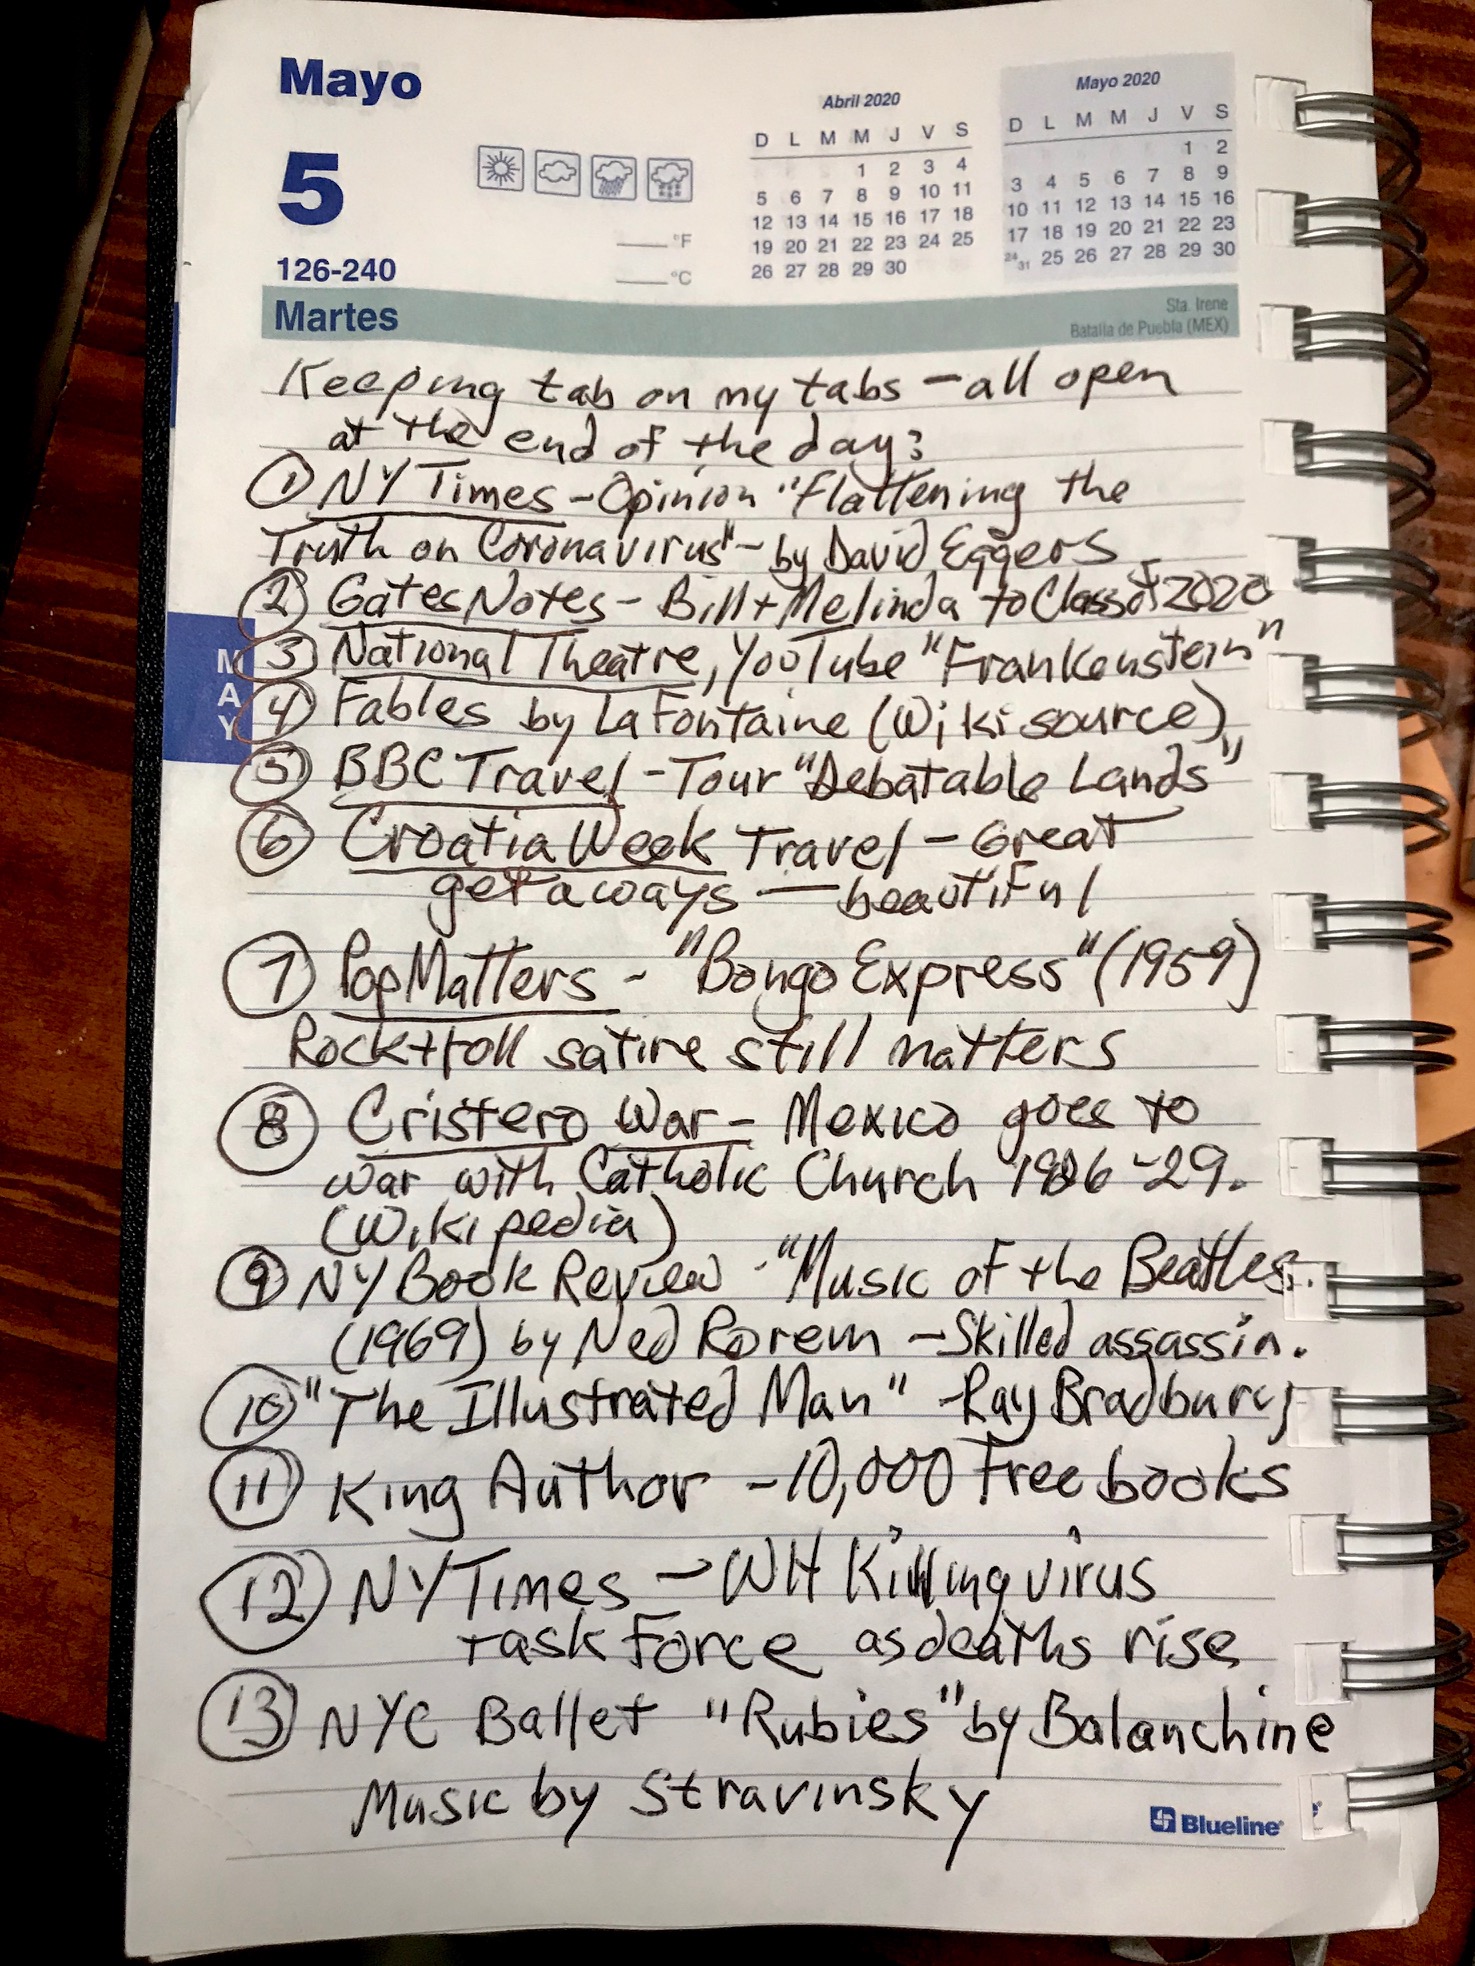 Mayo
5
126-240
°F
°C
Abril 2020
D L M M J V S
1 2 3 4
5 6 7 8 9 10 11
12 13 14 15 16 17 18
19 20 21 22 23 24 25
26 27 28 29 30
Mayo 2020
D L M M J V S
1 2
3 4 5 6 7 8 9
10 11 12 13 14 15 16
17 18 19 20 21 22 23
24/31 25 26 27 28 29 30
Martes
Sta. Irene
Batalla de Puebla (MEX)
MAY
Keeping tab on my tabs – all open
at the end of the day:
① NY Times – Opinion "Flattening the
Truth on Coronavirus" – by David Eggers
② GatesNotes – Bill + Melinda to Class of 2020
③ National Theatre, YouTube "Frankenstein"
④ Fables by La Fontaine (Wikisource)
⑤ BBC Travel – Tour "Debatable Lands"
⑥ Croatia Week Travel – Great
getaways — beautiful
⑦ PopMatters – "Bongo Express" (1959)
Rock+roll satire still matters
⑧ Cristero War – Mexico goes to
war with Catholic Church 1926-29.
(Wikipedia)
⑨ NY Book Review - "Music of the Beatles.
(1969) by Ned Rorem – Skilled assassin.
⑩ "The Illustrated Man" - Ray Bradbury
⑪ King Author – 10,000 Free books
⑫ NY Times – WH Killing virus
task Force as deaths rise
⑬ NYC Ballet "Rubies" by Balanchine
Music by Stravinsky
Blueline